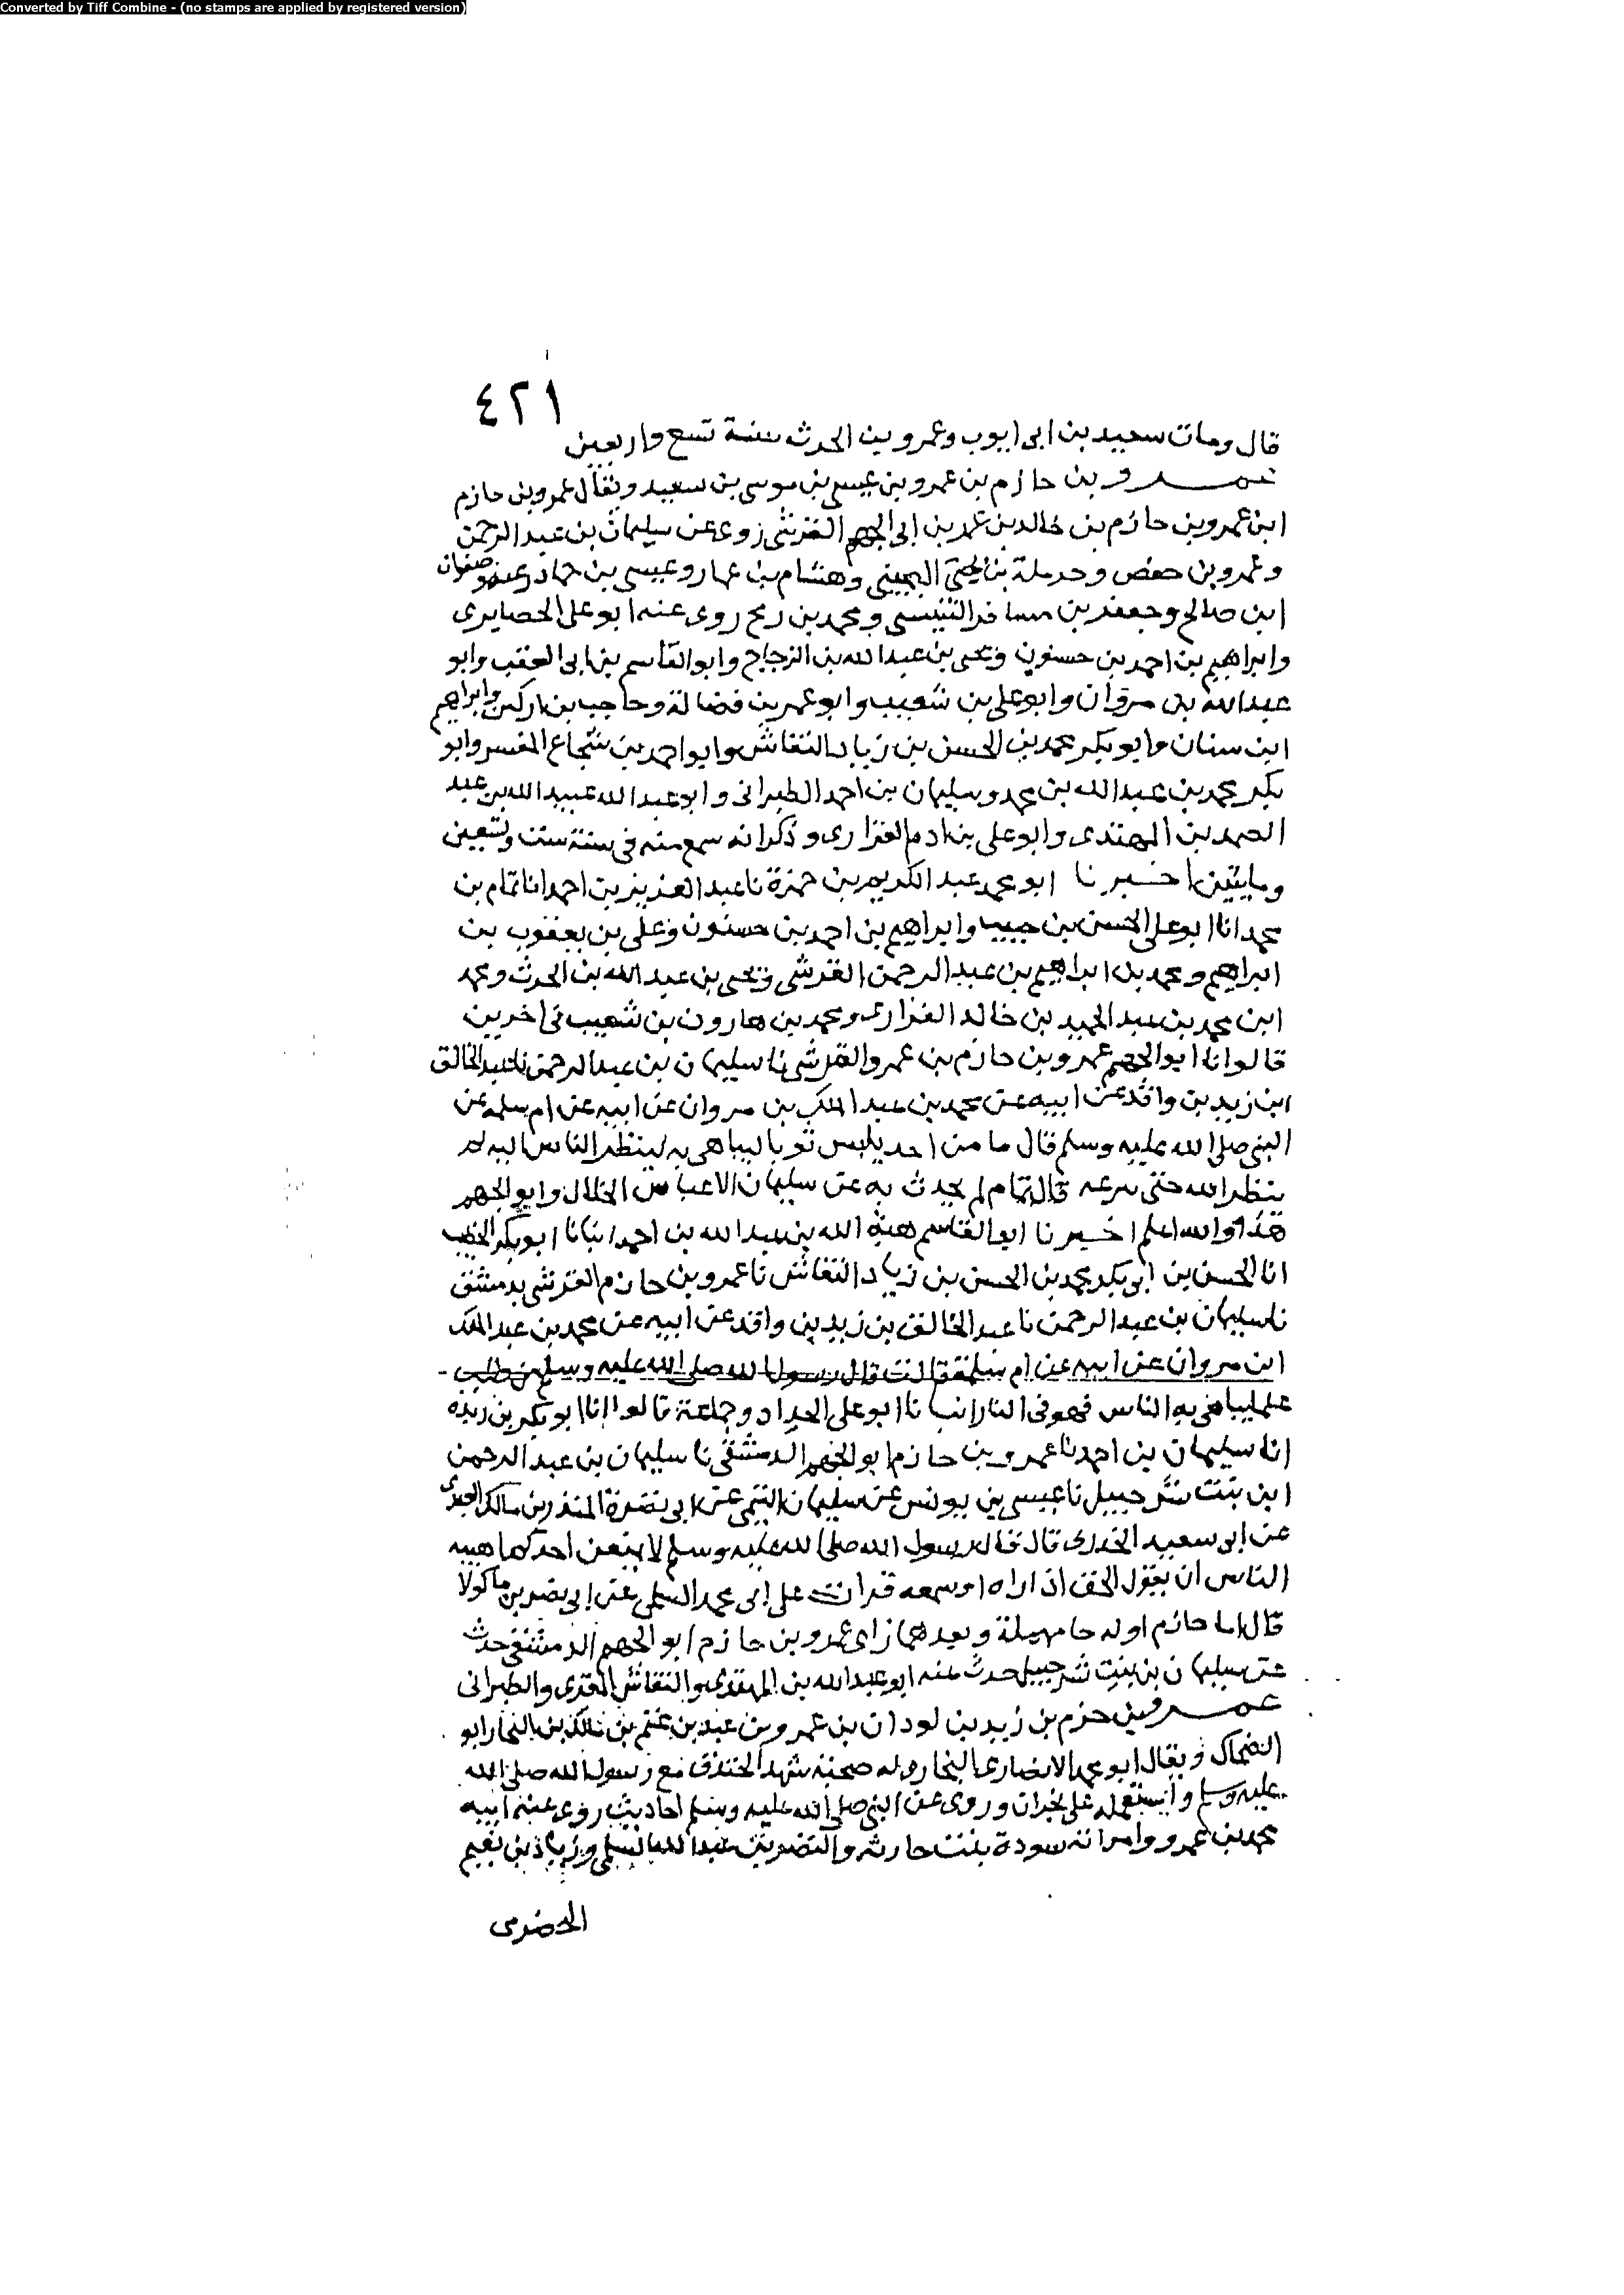 Converted by Tiff Combine - (no stamps are applied by registered version)
٤٢١
قال ومات سعيد بن ابى ايوب وعمرو بن الحرث سنة تسع واربعين
عمرو بن حازم بن عمرو بن عيسى بن موسى بن سعيد ويقال عمرو بن حازم
ابن عمرو بن حازم بن خالد بن محمد بن ابى الجهم القرشى روى عن سليمان بن عبد الرحمن
وعمرو بن حفص وحرملة بن يحيى التجيبى وهشام بن عمار وعيسى بن حماد زغبه وصفوان
ابن صالح وجعفر بن مسافر التنيسى ومحمد بن رمح روى عنه ابو على الحصايرى
وابراهيم بن احمد بن حسنون ويحيى بن عبد الله بن الزجاج وابو القاسم بن ابى العقب وابو
عبد الله بن مروان وابو على بن شعيب وابو عمر بن فضالة وحاجب بن اركين وابراهيم
ابن سنان وابو بكر محمد بن الحسن بن زياد النقاش وابو احمد بن شجاع المفسر وابو
بكر محمد بن عبد الله بن محمد وسليمان بن احمد الطبرانى وابو عبد الله عبيد الله بن عبد
الصمد بن المهتدى وابو على بن ادم الفزارى وذكر انه سمع منه فى سنة ست وتسعين
ومايتين اخبرنا ابو محمد عبد الكريم بن حمزة نا عبد العزيز بن احمد انا تمام بن
محمد انا ابو على الحسن بن حبيب وابراهيم بن احمد بن حسنون وعلى بن يعقوب بن
ابراهيم ومحمد بن ابراهيم بن عبد الرحمن القرشى ويحيى بن عبد الله بن الحرث ومحمد
ابن محمد بن عبد الحميد بن خالد الفزارى ومحمد بن هارون بن شعيب فى اخرين
قالوا نا ابو الجهم عمرو بن حازم بن عمرو القرشى نا سليمان بن عبد الرحمن نا عبد الخالق
ابن زيد بن واقد عن ابيه عن محمد بن عبد الملك بن مروان عن ابيه عن ام سلمه عن
النبى صلى الله عليه وسلم قال ما من احد يلبس ثوبا ليباهى به لينظر الناس اليه لم
ينظر الله حتى ينزعه قال تمام لم يحدث به عن سليمان الا عباس الخلال وابو الجهم
هذا والله اعلم اخبرنا ابو القاسم هبة الله بن عبد الله بن احمد انبانا ابو بكر الخطيب
انا الحسن بن ابى بكر محمد بن الحسن بن زياد النقاش نا عمرو بن حازم القرشى بدمشق
نا سليمان بن عبد الرحمن نا عبد الخالق بن زيد بن واقد عن ابيه عن محمد بن عبد الملك
ابن مروان عن ابيه عن ام سلمة قالت قال رسول الله صلى الله عليه وسلم من طلب
علما يباهى به الناس فهو فى النار انبانا ابو على الحداد وجماعة قالوا انا ابو بكر بن ريذه
انا سليمان بن احمد نا عمرو بن حازم ابو الجهم الدمشقى نا سليمان بن عبد الرحمن
ابن بنت شرحبيل نا عيسى بن يونس عن سليمان التيمى عن ابى نضرة المنذر بن مالك العبدى
عن ابى سعيد الخدرى قال قال رسول الله صلى الله عليه وسلم لا يمنعن احدكم هيبه
الناس ان يقول الحق اذا راه او سمعه قرات على ابى محمد السلمى عن ابى نصر بن ماكولا
قال اما حازم اوله حا مهملة وبعدها زاى عمرو بن حازم ابو الجهم الدمشقى حدث
عن سليمان بن بنت شرحبيل حدث عنه ابو عبد الله بن المهتدى والنقاش المقرى والطبرانى
عمرو بن حزم بن زيد بن لوذان بن عمرو بن عبد بن غنم بن مالك بن النجار ابو
الضحاك ويقال ابو محمد الانصارى النجارى له صحبة شهد الخندق مع رسول الله صلى الله
عليه وسلم واستعمله على نجران وروى عن النبى صلى الله عليه وسلم احاديث روى عنه ابنه
محمد بن عمرو وامراته سودة بنت حارثه والنضر بن عبد الله السلمى وزياد بن نعيم
الحضرمى